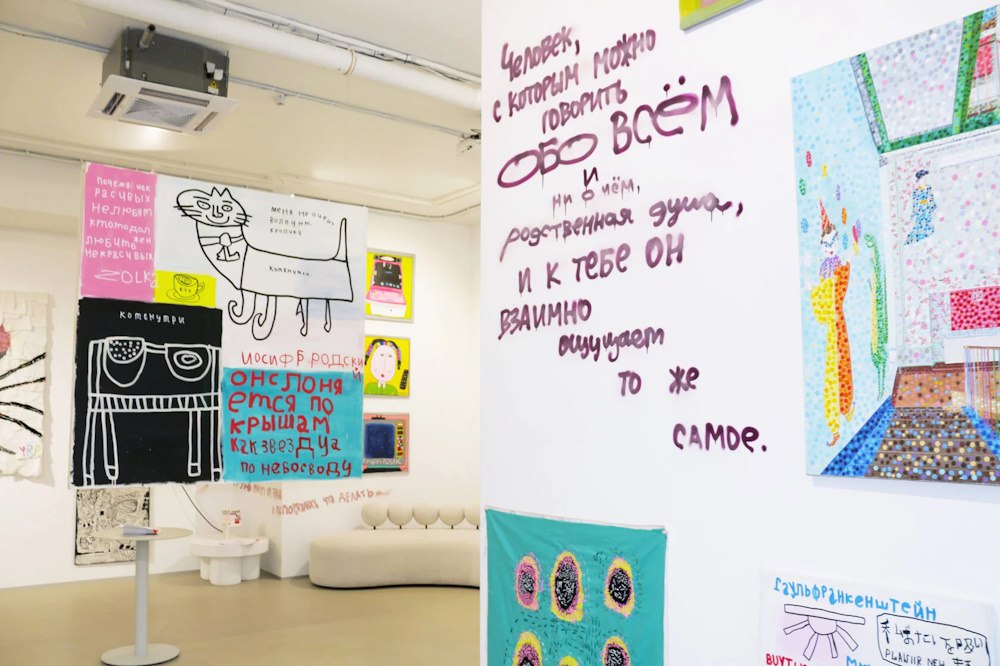 почему нек
расчвых
нелюбят
ктотодол
любить жен
некрасчвых
ZOLKA
меня не очень
волнуют
кролики
котенутри
КТЕ
Котенутри
Иосиф Бродски
онслоня
ется по
крышам
какзвезДЦа
по небосводу
что делать
Человек,
с которым можно
говорить
обо всём
и
ни о нём,
родственная душа,
и к тебе он
взаимно
ощущает
то же
самое.
Гаульфранкенштейн